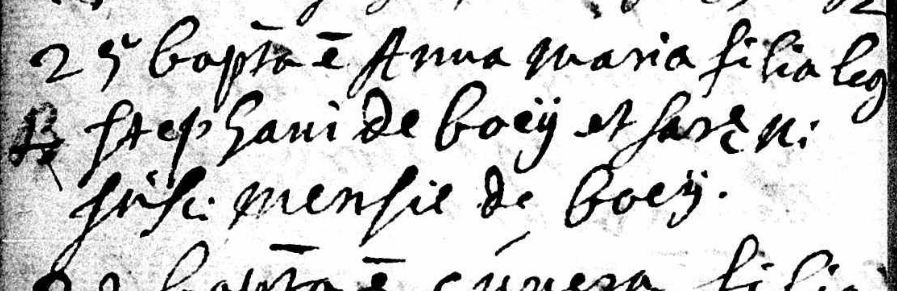 25 bapta ē Anna maria filia leg
stephani de boeÿ et
susc: mensie de boeÿ.
bapta ē filia